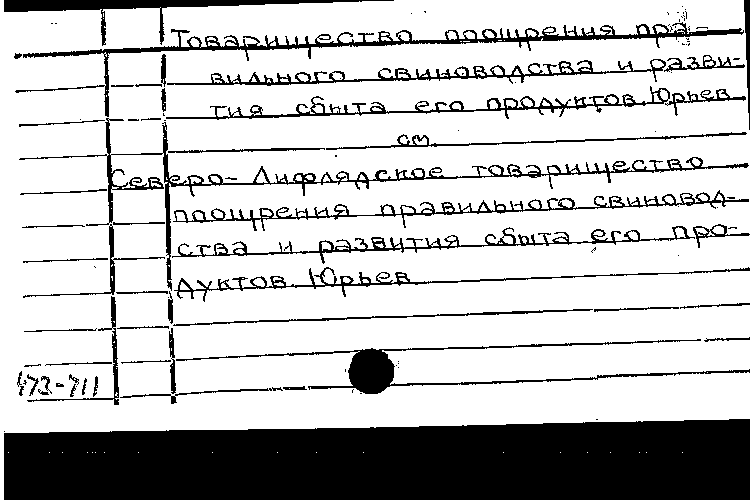 Товарищество поощрения пра-
вильного свиноводства и разви-
тия сбыта его продуктов. Юрьев
см.
Северо-Лифляндское товарищество
поощрения правильного свиновод-
ства и развития сбыта его про-
дуктов. Юрьев
473-711